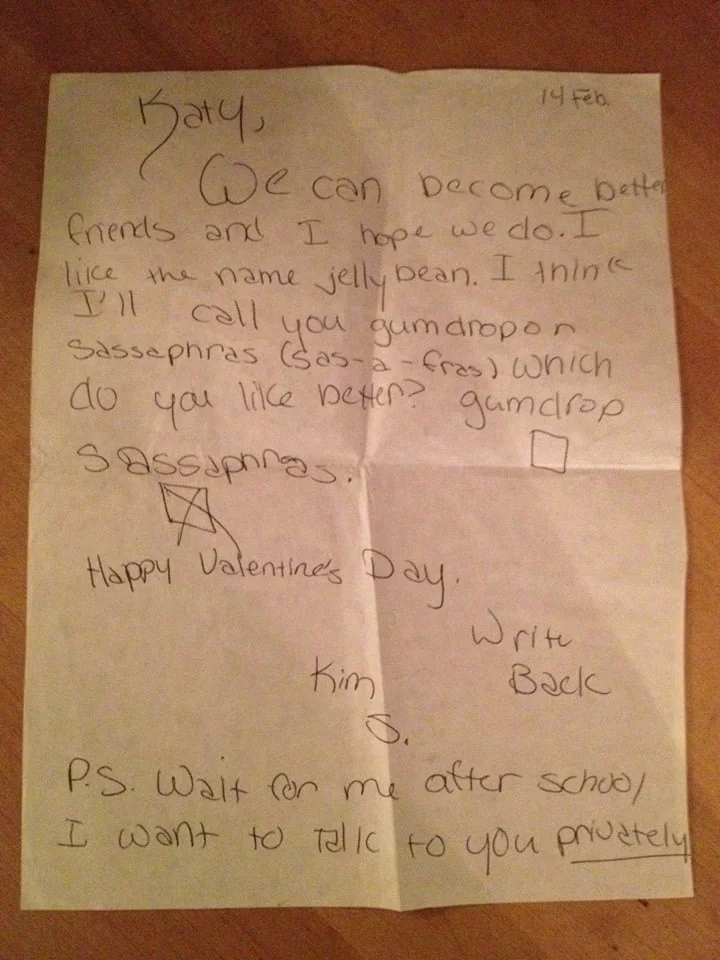 14 Feb.
Katy,
We can become better
friends and I hope we do. I
like the name jellybean. I think
I'll call you gumdrop or
Sassaphras (sas-a-fras) which
do you like better? gumdrop
Sassaphras.
Happy Valentine's Day.
Write
Back
Kim
S.
P.S. Wait for me after school
I want to Talk to you privately